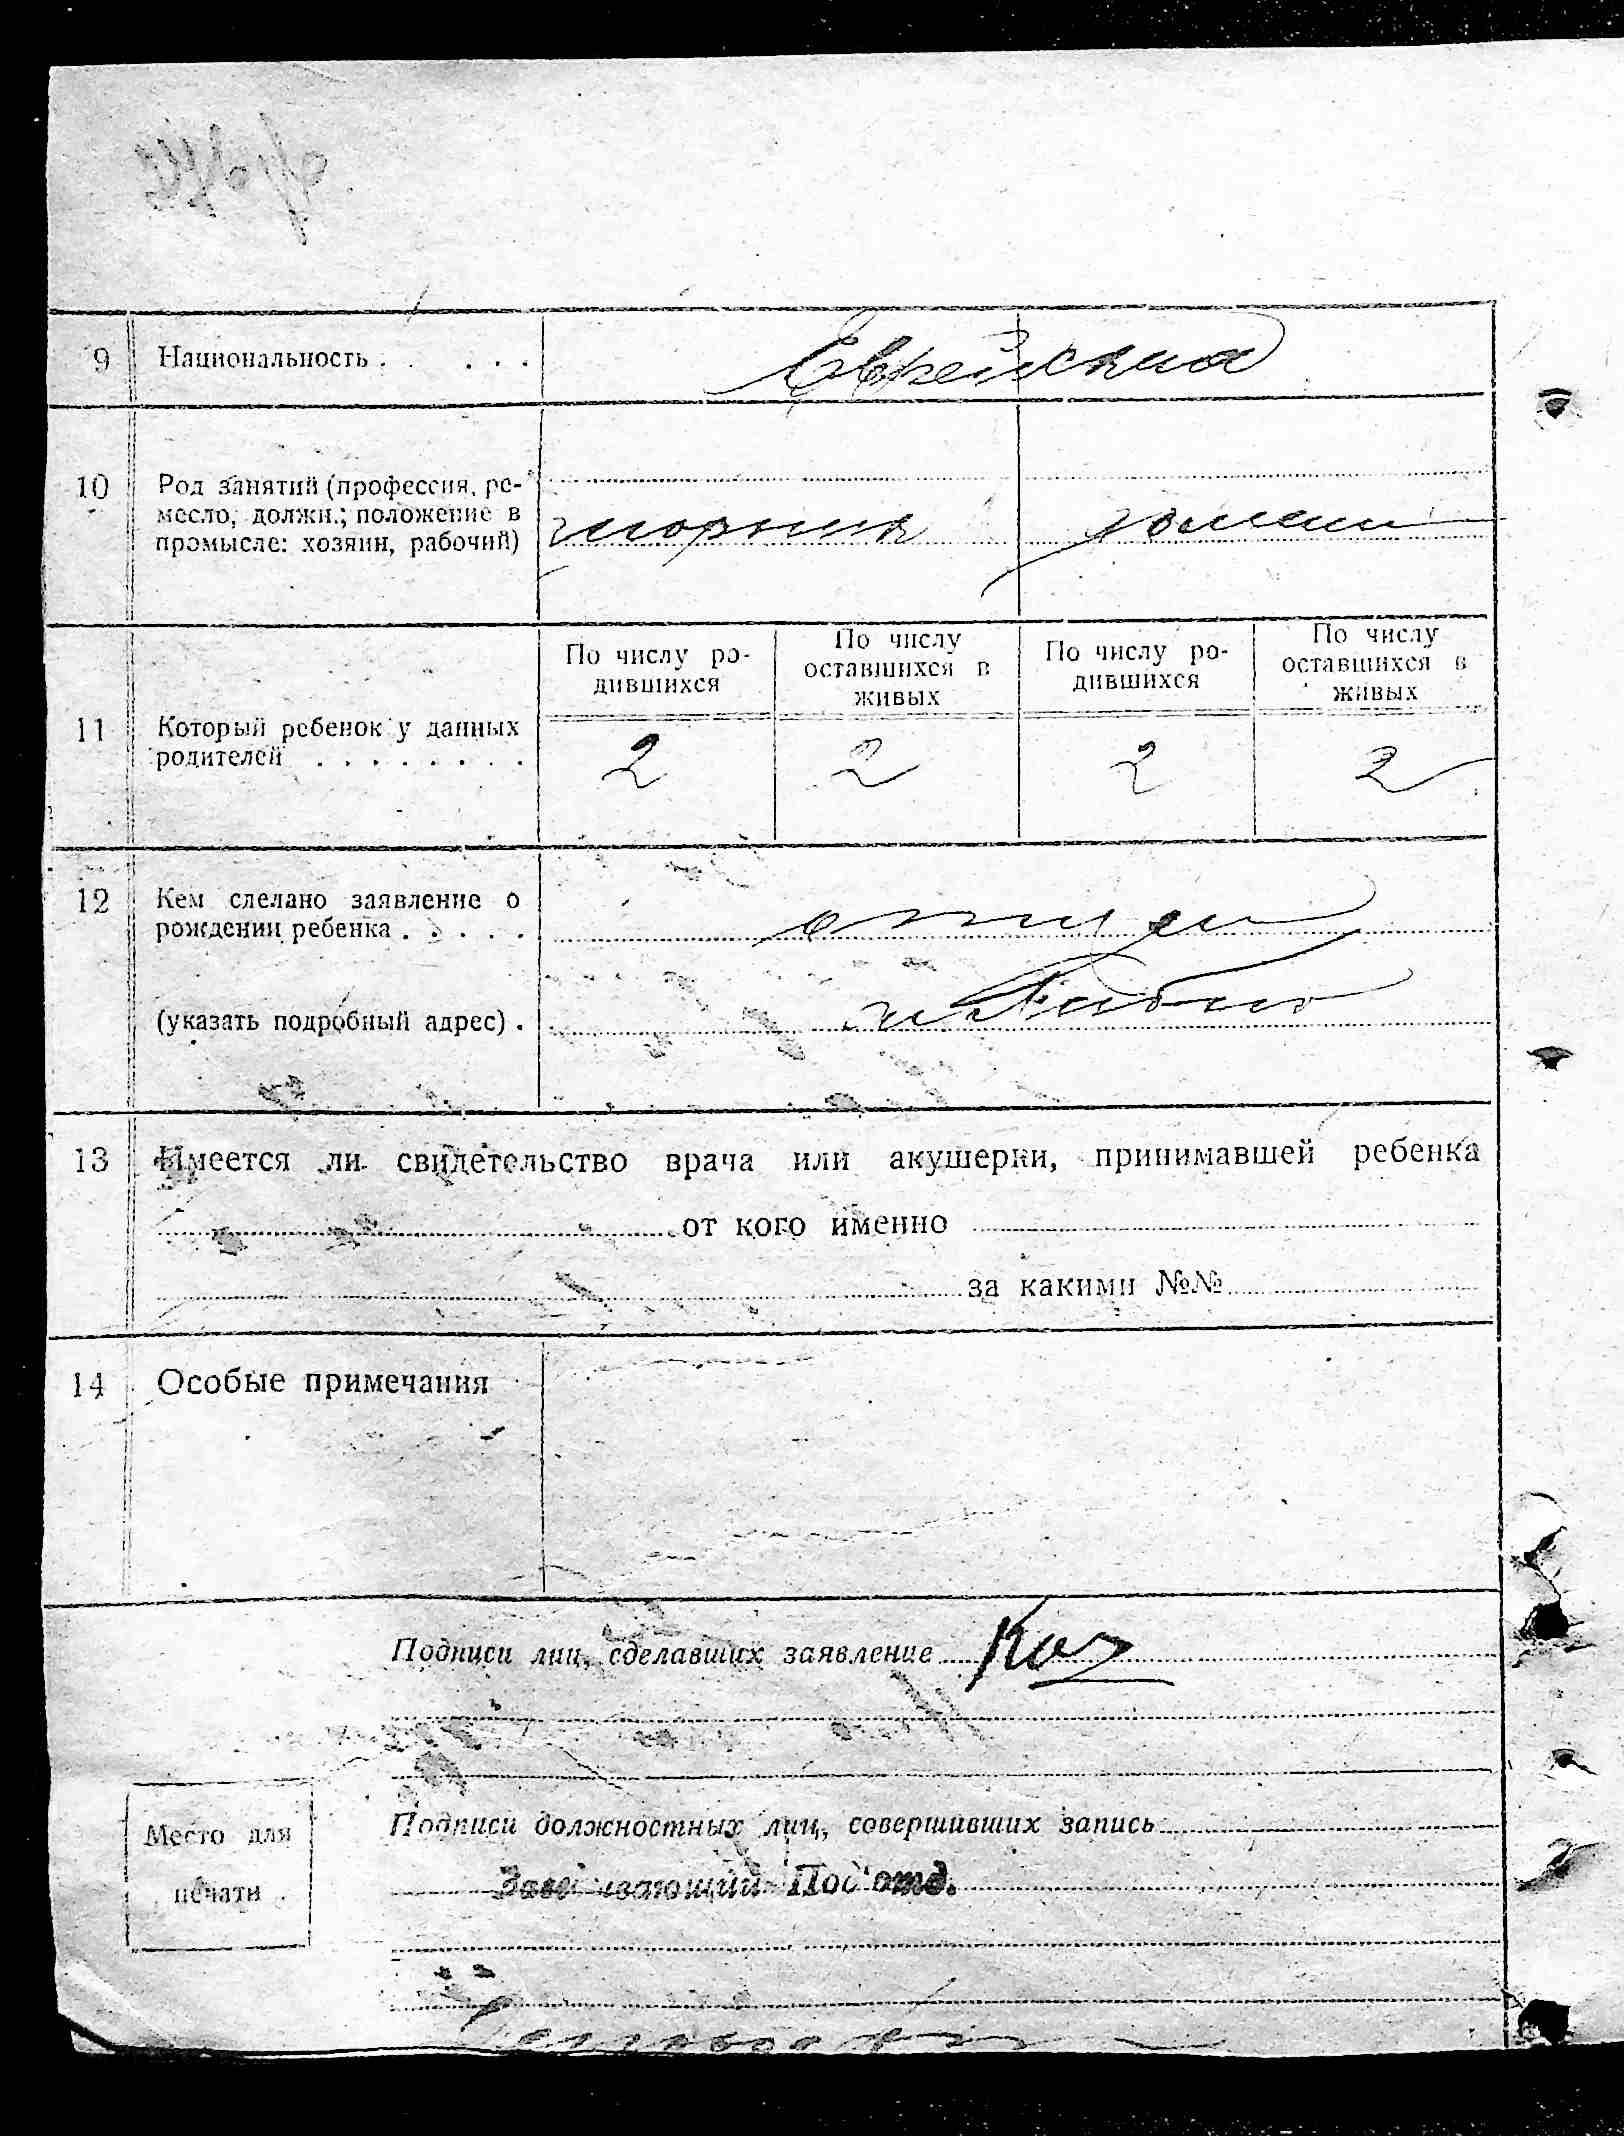 9 Национальность . . . . . . Еврейская
10 Род занятий (профессия, ре-
месло, должн.; положение в
промысле: хозяин, рабочий)
По числу ро-
дившихся
По числу
оставшихся в
живых
По числу ро-
дившихся
По числу
оставшихся в
живых
11 Который ребенок у данных
родителей . . . . . . . .
2 2 2 2
12 Кем сделано заявление о
рождении ребенка . . . . . отцем
(указать подробный адрес) .
13 Имеется ли свидетельство врача или акушерки, принимавшей ребенка
от кого именно
за какими №№
14 Особые примечания
Подписи лиц, сделавших заявление
Место для
печати
Подписи должностных лиц, совершивших запись
Заведывающий Под'отд.